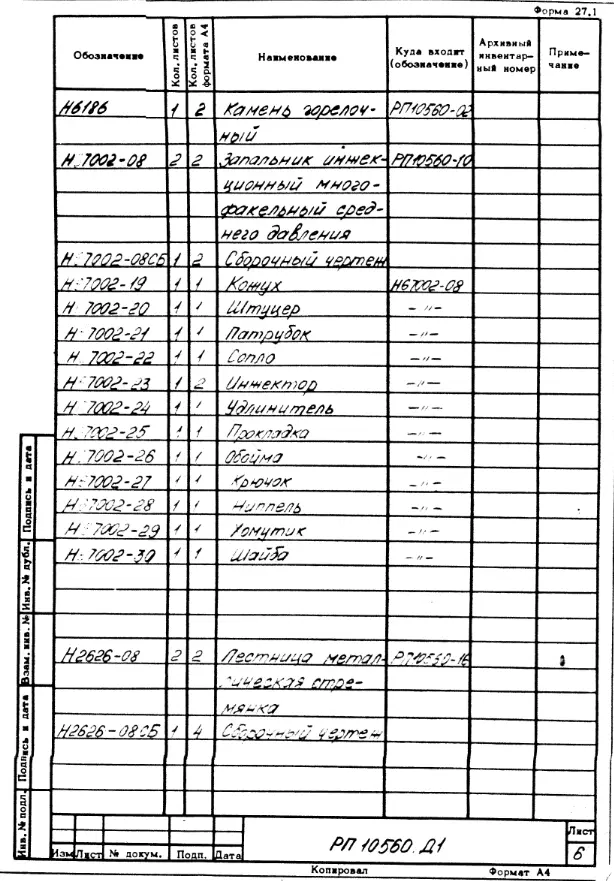 Форма 27.1
Обозначение Кол. листов Кол. листов формата А4 Наименование Куда входит (обозначение) Архивный инвентарный номер Примечание
Н6186 1 2 Камень горелоч- РП10560-02
ный
7002-08 2 2 Запальник инжек- РП10560-10
ционный много-
факельный сред-
него давления
7002-08СБ 1 2 Сборочный чертеж
7002-19 1 1 Кожух Н67002-08
7002-20 1 1 Штуцер -〃-
7002-21 1 1 Патрубок -〃-
7002-22 1 1 Сопло -〃-
7002-23 1 2 Инжектор -〃-
7002-24 1 1 Удлинитель -〃-
7002-25 1 1 Прокладка -〃-
7002-26 1 1 Обойма -〃-
7002-27 1 1 Крючок -〃-
7002-28 1 1 Ниппель -〃-
7002-29 1 1 Хомутик -〃-
7002-30 1 1 Шайба -〃-
Н2626-08 2 2 Лестница метал- РП10560-16
лическая стре-
мянка
Н2626-08СБ 1 4 Сборочный чертеж
Инв. № подл. Подпись и дата Взам. инв. № Инв. № дубл. Подпись и дата
РП 10560.Д1
Лист
6
Изм Лист № докум. Подп. Дата
Копировал Формат А4